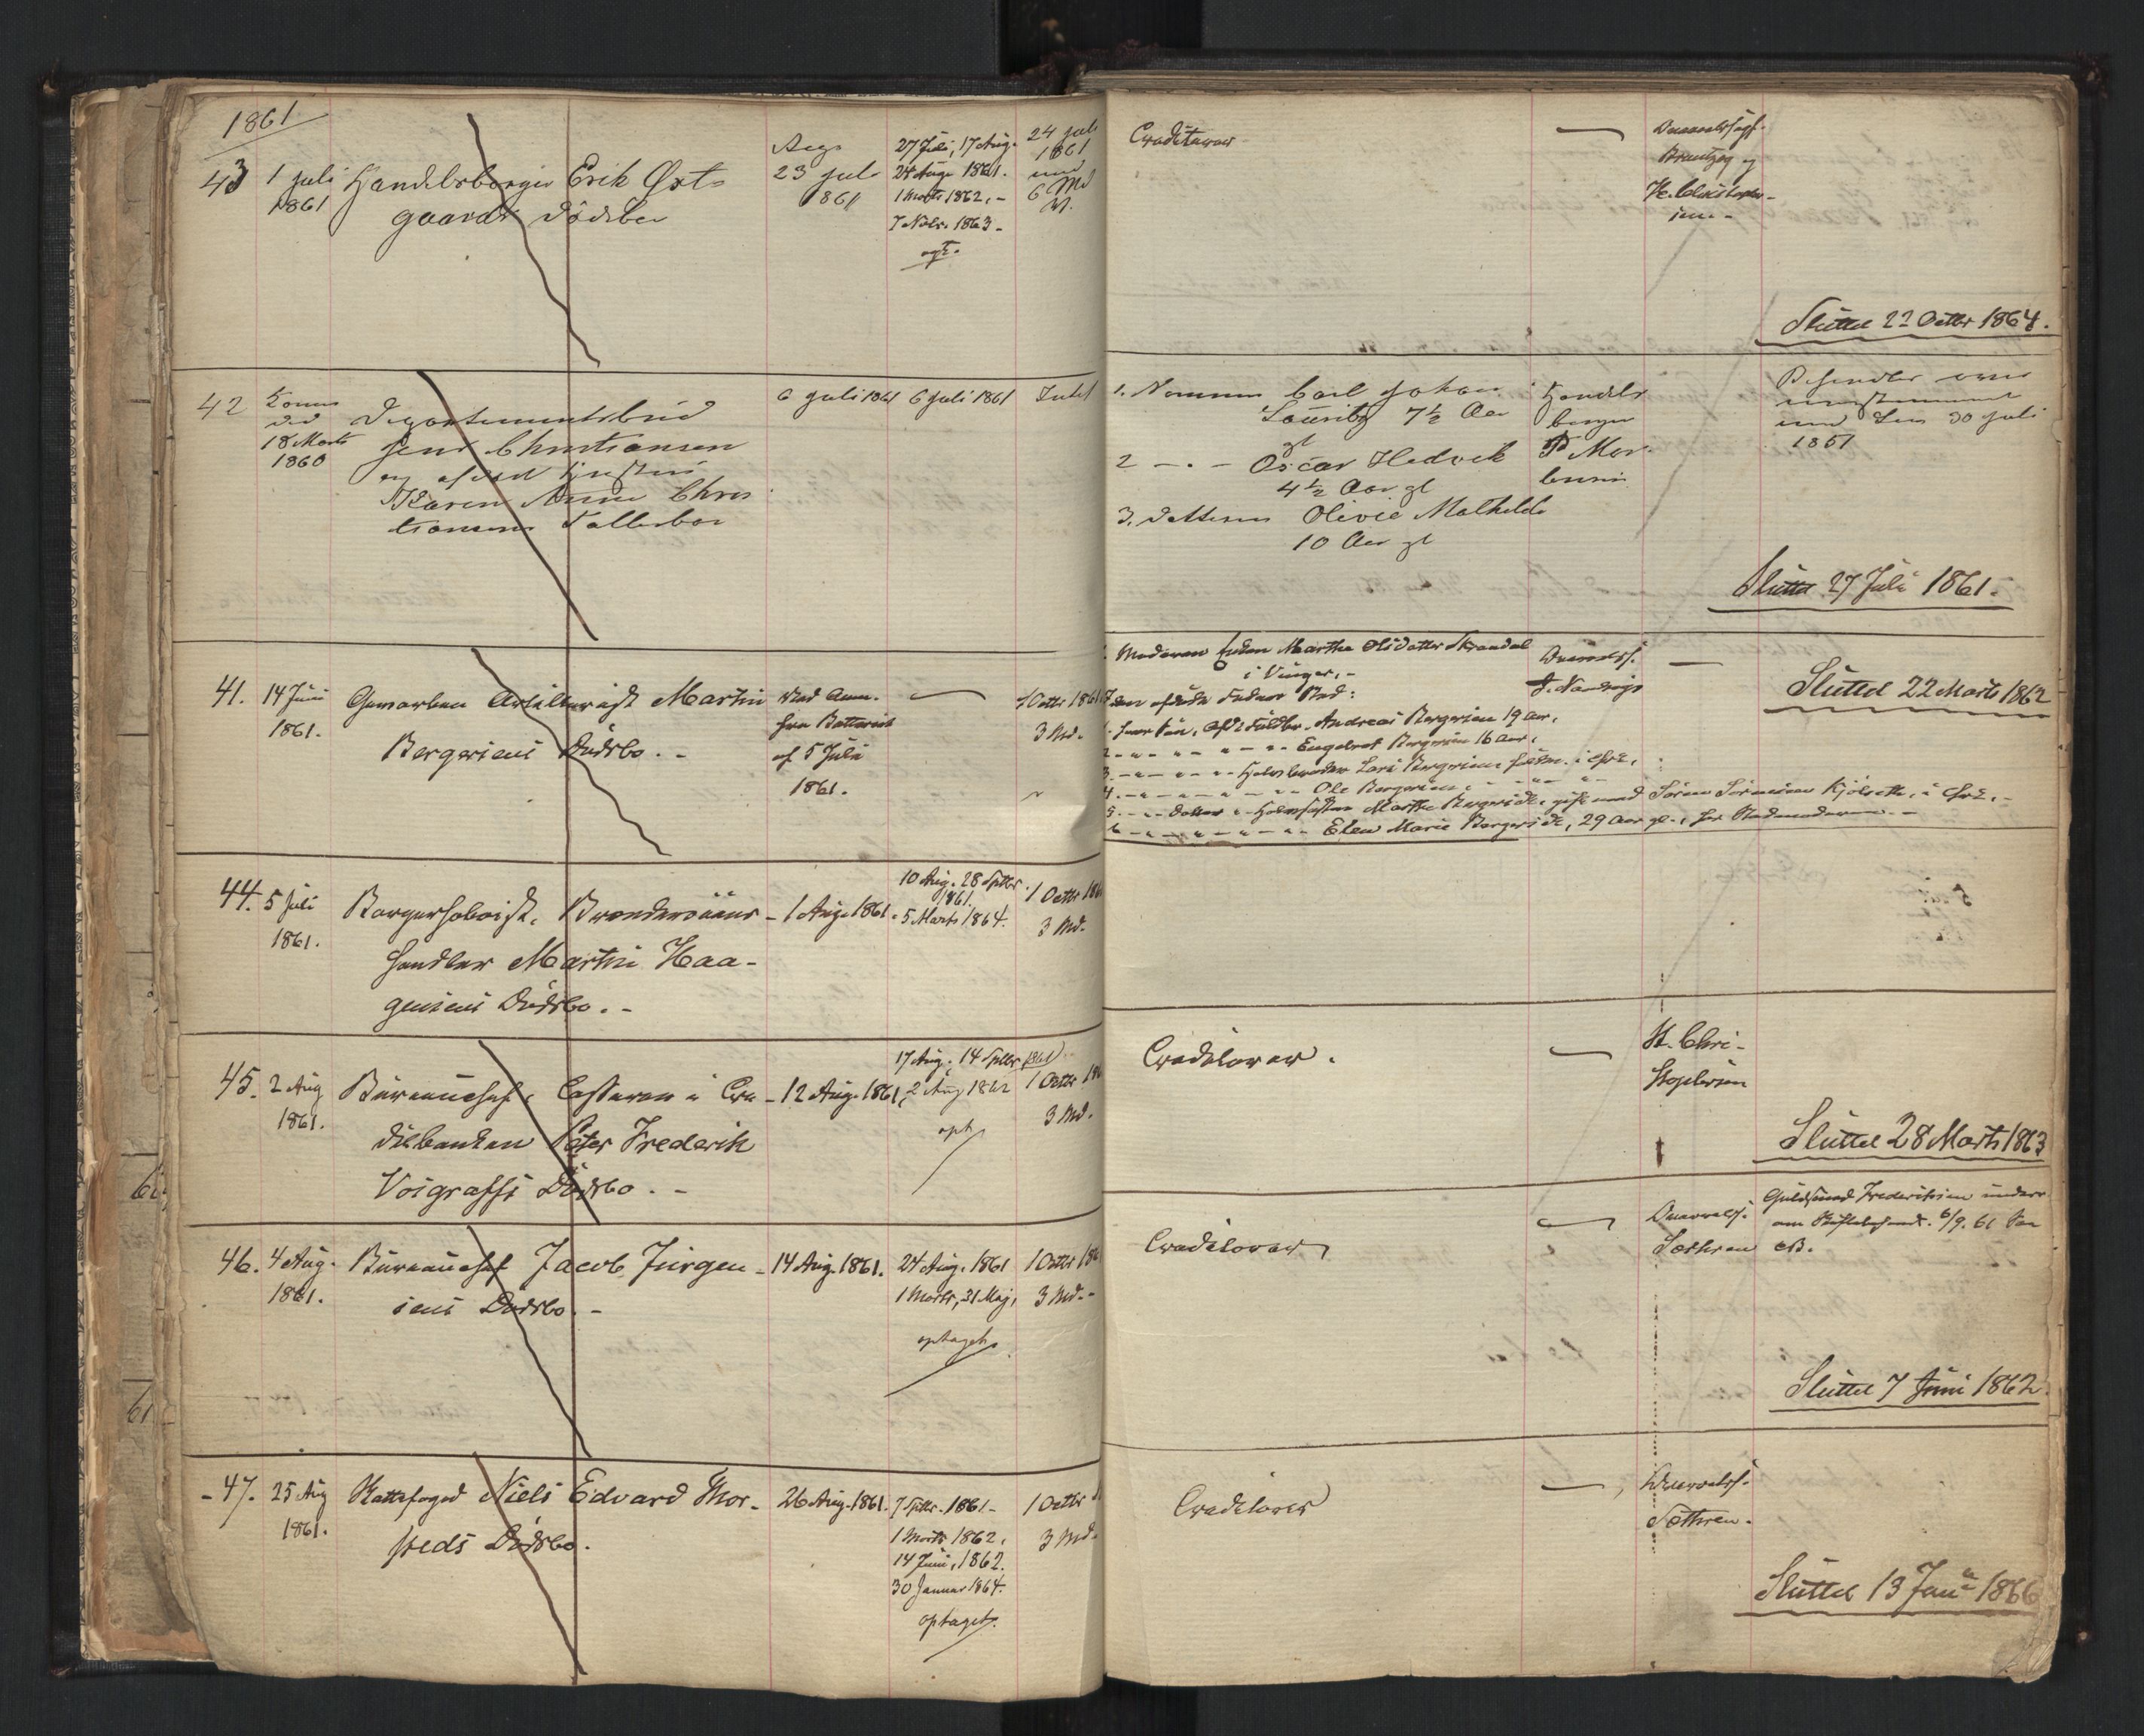 1861
43
1 juli
1861
Handelsborger Erik Øst-
gaards Dødsbo
23 juli
1861
27 Juli, 17 Aug.
24 Aug. 1861.
1 Marts 1862, -
7 Novbr. 1863 -
opt.
24 juli
1861
med
6 Md
V.
Creditorer
Brantzeg og
H. Christopher-
sen -
Sluttet 22 Octbr 1864.
42
18 Marts
1860
Departementsbud
Jens Christiansen
og afdød Hustru
Karen Anne Chris
tiansens Fællesbo
6 juli 1861
6 juli 1861
Intet
1. Sønnen Carl Johan
Lauritz 7½ Aar
gl
2 - . - Oscar Hedvik
4½ Aar gl
3. Datteren Olivie Mathilde
10 Aar gl
Handels
borger
P Mor-
tensen
30 juli
1861
Sluttet 27 Juli 1861.
41.
14 Juni
1861.
Gevorben Artillerist Martin
Bergersens Dødsbo. -
ved Anm.
fra Batteriet
af 5 Juli
1861.
1 Octbr 1861
3 Md.
Moderen Enken Marthe Olsdatter Strandal
i Vinger, -
Den afdøde Faders Børn:
1. hver Søn, Andreas Bergersen 19 Aar,
2 - " - " - " - Engebret Bergersen 16 Aar,
3. - " - " - Halvbroder Lars Bergersen
4. - " - " - " - Ole Bergersen
5. - " - Datter - Halvsøster Marthe Bergersdr, gift med Søren Sørensen Kjølseth,
6 - " - " - " - Elen Marie Bergersdr, 29 Aar gl.,
Sluttet 22 Marts 1862
44.
5 Juli
1861.
Borgerhoboist, Brændeviins-
handler Martin Haa-
gensens Dødsbo. -
- 1 Aug. 1861.
10 Aug. 28 Septbr.
1861.
5 Marts 1864.
1 Octbr 186
3 Md.
45.
2 Aug
1861.
Bureauchef, Casserer i Cre-
ditbanken Peter Frederik
Voigraffs Dødsbo. -
- 12 Aug. 1861,
17 Aug., 14 Septbr. 1861
2 Aug 1862
opt
1 Octbr 186
3 Md.
Creditorer.
H. Chri-
stophersen
Sluttet 28 Marts 1863
46.
4 Aug.
1861.
Bureauchef Jacob Jürgen-
sens Dødsbo. -
- 14 Aug. 1861.
24 Aug. 1861
1 Marts, 31 Maj,
optaget.
1 Octbr 186
3 Md. -
Creditorer
Sothren
Guldsmed Frederiksen
6/9. 61
Sluttet 7 Juni 1862.
- 47.
25 Aug
1861.
Rettsfoged Niels Edvard Thor-
steds Dødsbo.
26 Aug. 1861.
7 Septbr. 1861 -
1 Marts 1862,
14 Juni, 1862.
30 Januar 1864.
optaget.
1 Octbr
3 Md.
Creditorer
Sothren.
Sluttet 13 Jan 1866